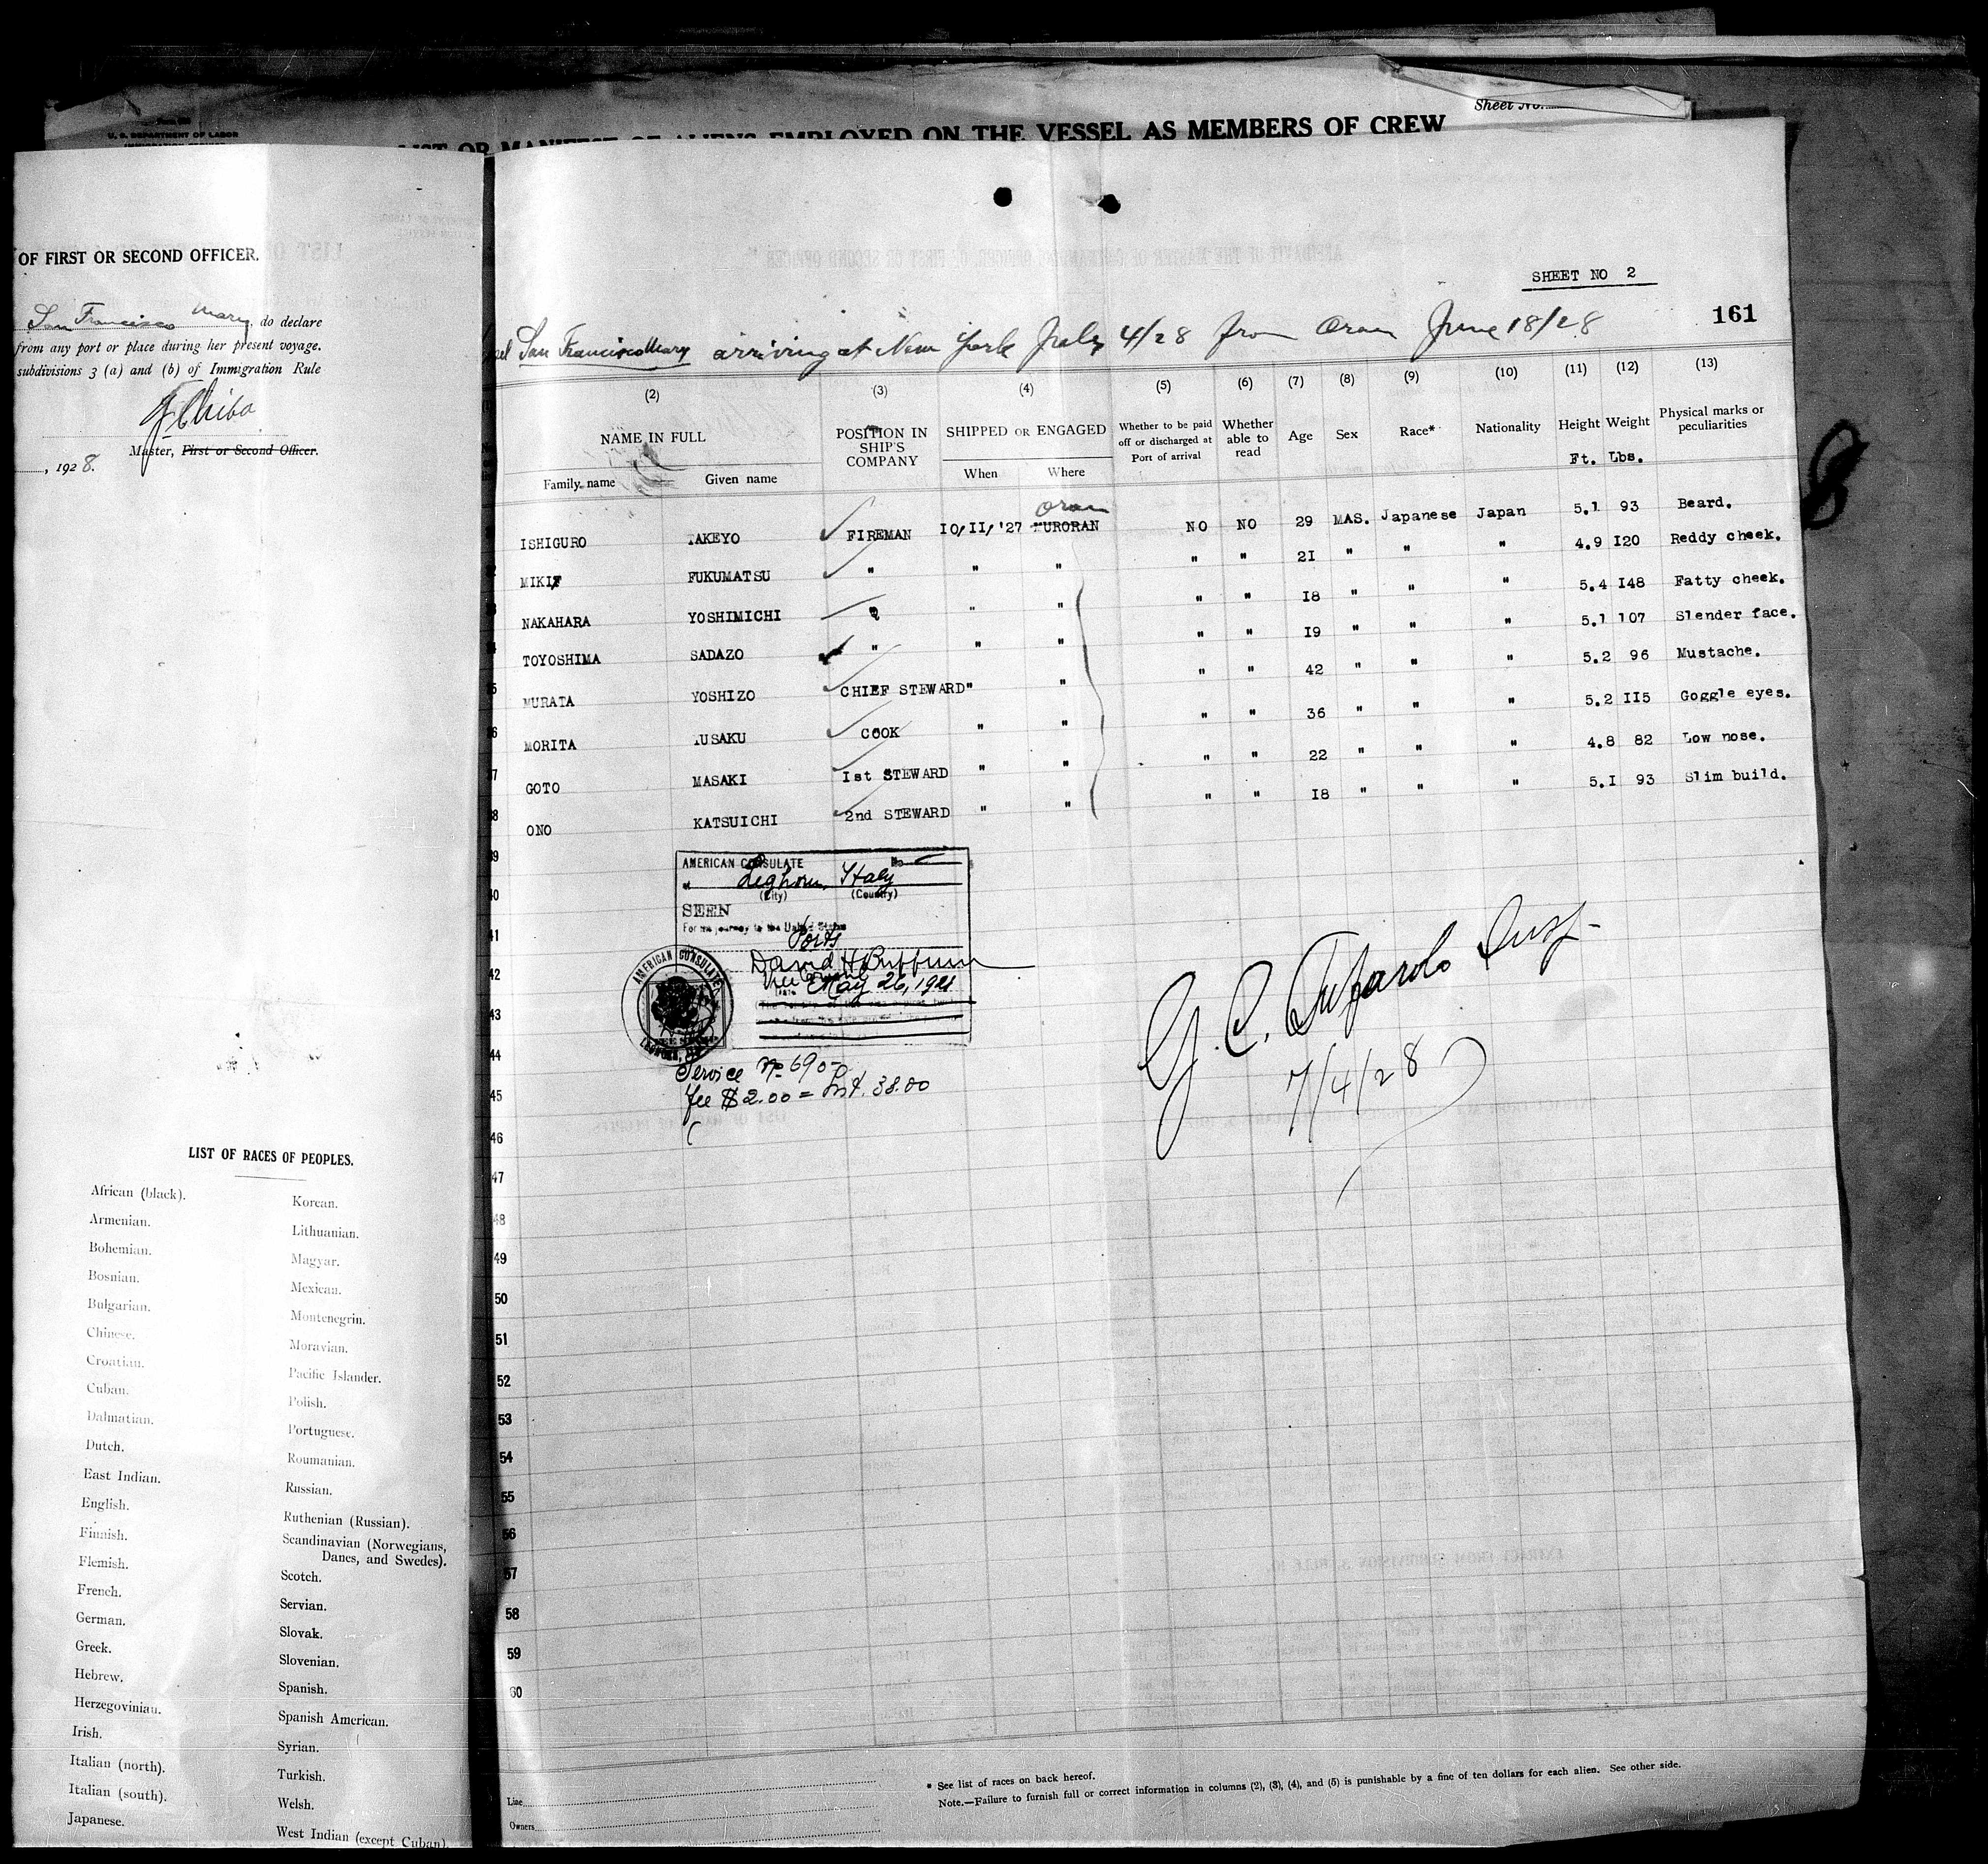 Sheet No.
U. S. DEPARTMENT OF LABOR
LIST OR MANIFEST OF ALIENS EMPLOYED ON THE VESSEL AS MEMBERS OF CREW
OF FIRST OR SECOND OFFICER.
San Francisco Maru, do declare
from any port or place during her present voyage.
subdivisions 3 (a) and (b) of Immigration Rule
Chiba
Master, First or Second Officer.
, 1928.
LIST OF RACES OF PEOPLES.
African (black).
Armenian.
Bohemian.
Bosnian.
Bulgarian.
Chinese.
Croatian.
Cuban.
Dalmatian.
Dutch.
East Indian.
English.
Finnish.
Flemish.
French.
German.
Greek.
Hebrew.
Herzegovinian.
Irish.
Italian (north).
Italian (south).
Japanese.
Korean.
Lithuanian.
Magyar.
Mexican.
Montenegrin.
Moravian.
Pacific Islander.
Polish.
Portuguese.
Roumanian.
Russian.
Ruthenian (Russian).
Scandinavian (Norwegians,
Danes, and Swedes).
Scotch.
Servian.
Slovak.
Slovenian.
Spanish.
Spanish American.
Syrian.
Turkish.
Welsh.
West Indian (except Cuban).
SHEET NO 2
161
San Francisco Maru arriving at New York July 4/28 from Oran June 18/28
(2) (3) (4) (5) (6) (7) (8) (9) (10) (11) (12) (13)
NAME IN FULL
Family name Given name
POSITION IN
SHIP'S
COMPANY
SHIPPED OR ENGAGED
When Where
Whether to be paid
off or discharged at
Port of arrival
Whether
able to
read
Age Sex Race* Nationality Height Weight
Ft. Lbs.
Physical marks or
peculiarities
Oran
ISHIGURO TAKEYO FIREMAN IO/II/'27 MURORAN NO NO 29 MAS. Japanese Japan 5.1 93 Beard.
MIKI FUKUMATSU " " " " " 2I " " " 4.9 I20 Reddy cheek.
NAKAHARA YOSHIMICHI " " " " " I8 " " " 5.4 I48 Fatty cheek.
TOYOSHIMA SADAZO " " " " " I9 " " " 5.1 107 Slender face.
MURATA YOSHIZO CHIEF STEWARD " " " " 42 " " " 5.2 96 Mustache.
MORITA YUSAKU COOK " " " " 36 " " " 5.2 II5 Goggle eyes.
GOTO MASAKI 1st STEWARD " " " " 22 " " " 4.8 82 Low nose.
ONO KATSUICHI 2nd STEWARD " " " " I8 " " " 5.I 93 Slim build.
39
40
41
42
43
44
45
46
47
48
49
50
51
52
53
54
55
56
57
58
59
60
AMERICAN CONSULATE No
at Leghorn, Italy
(City) (Country)
SEEN
For the journey to the United States
Ports
David H Buffum
May 26, 1928
AMERICAN CONSULATE
Service No 690
fee $2.00 = Lit. 38.00
G. C. Insp.
7/4/28
8
Line
Owners
* See list of races on back hereof.
Note.—Failure to furnish full or correct information in columns (2), (3), (4), and (5) is punishable by a fine of ten dollars for each alien. See other side.